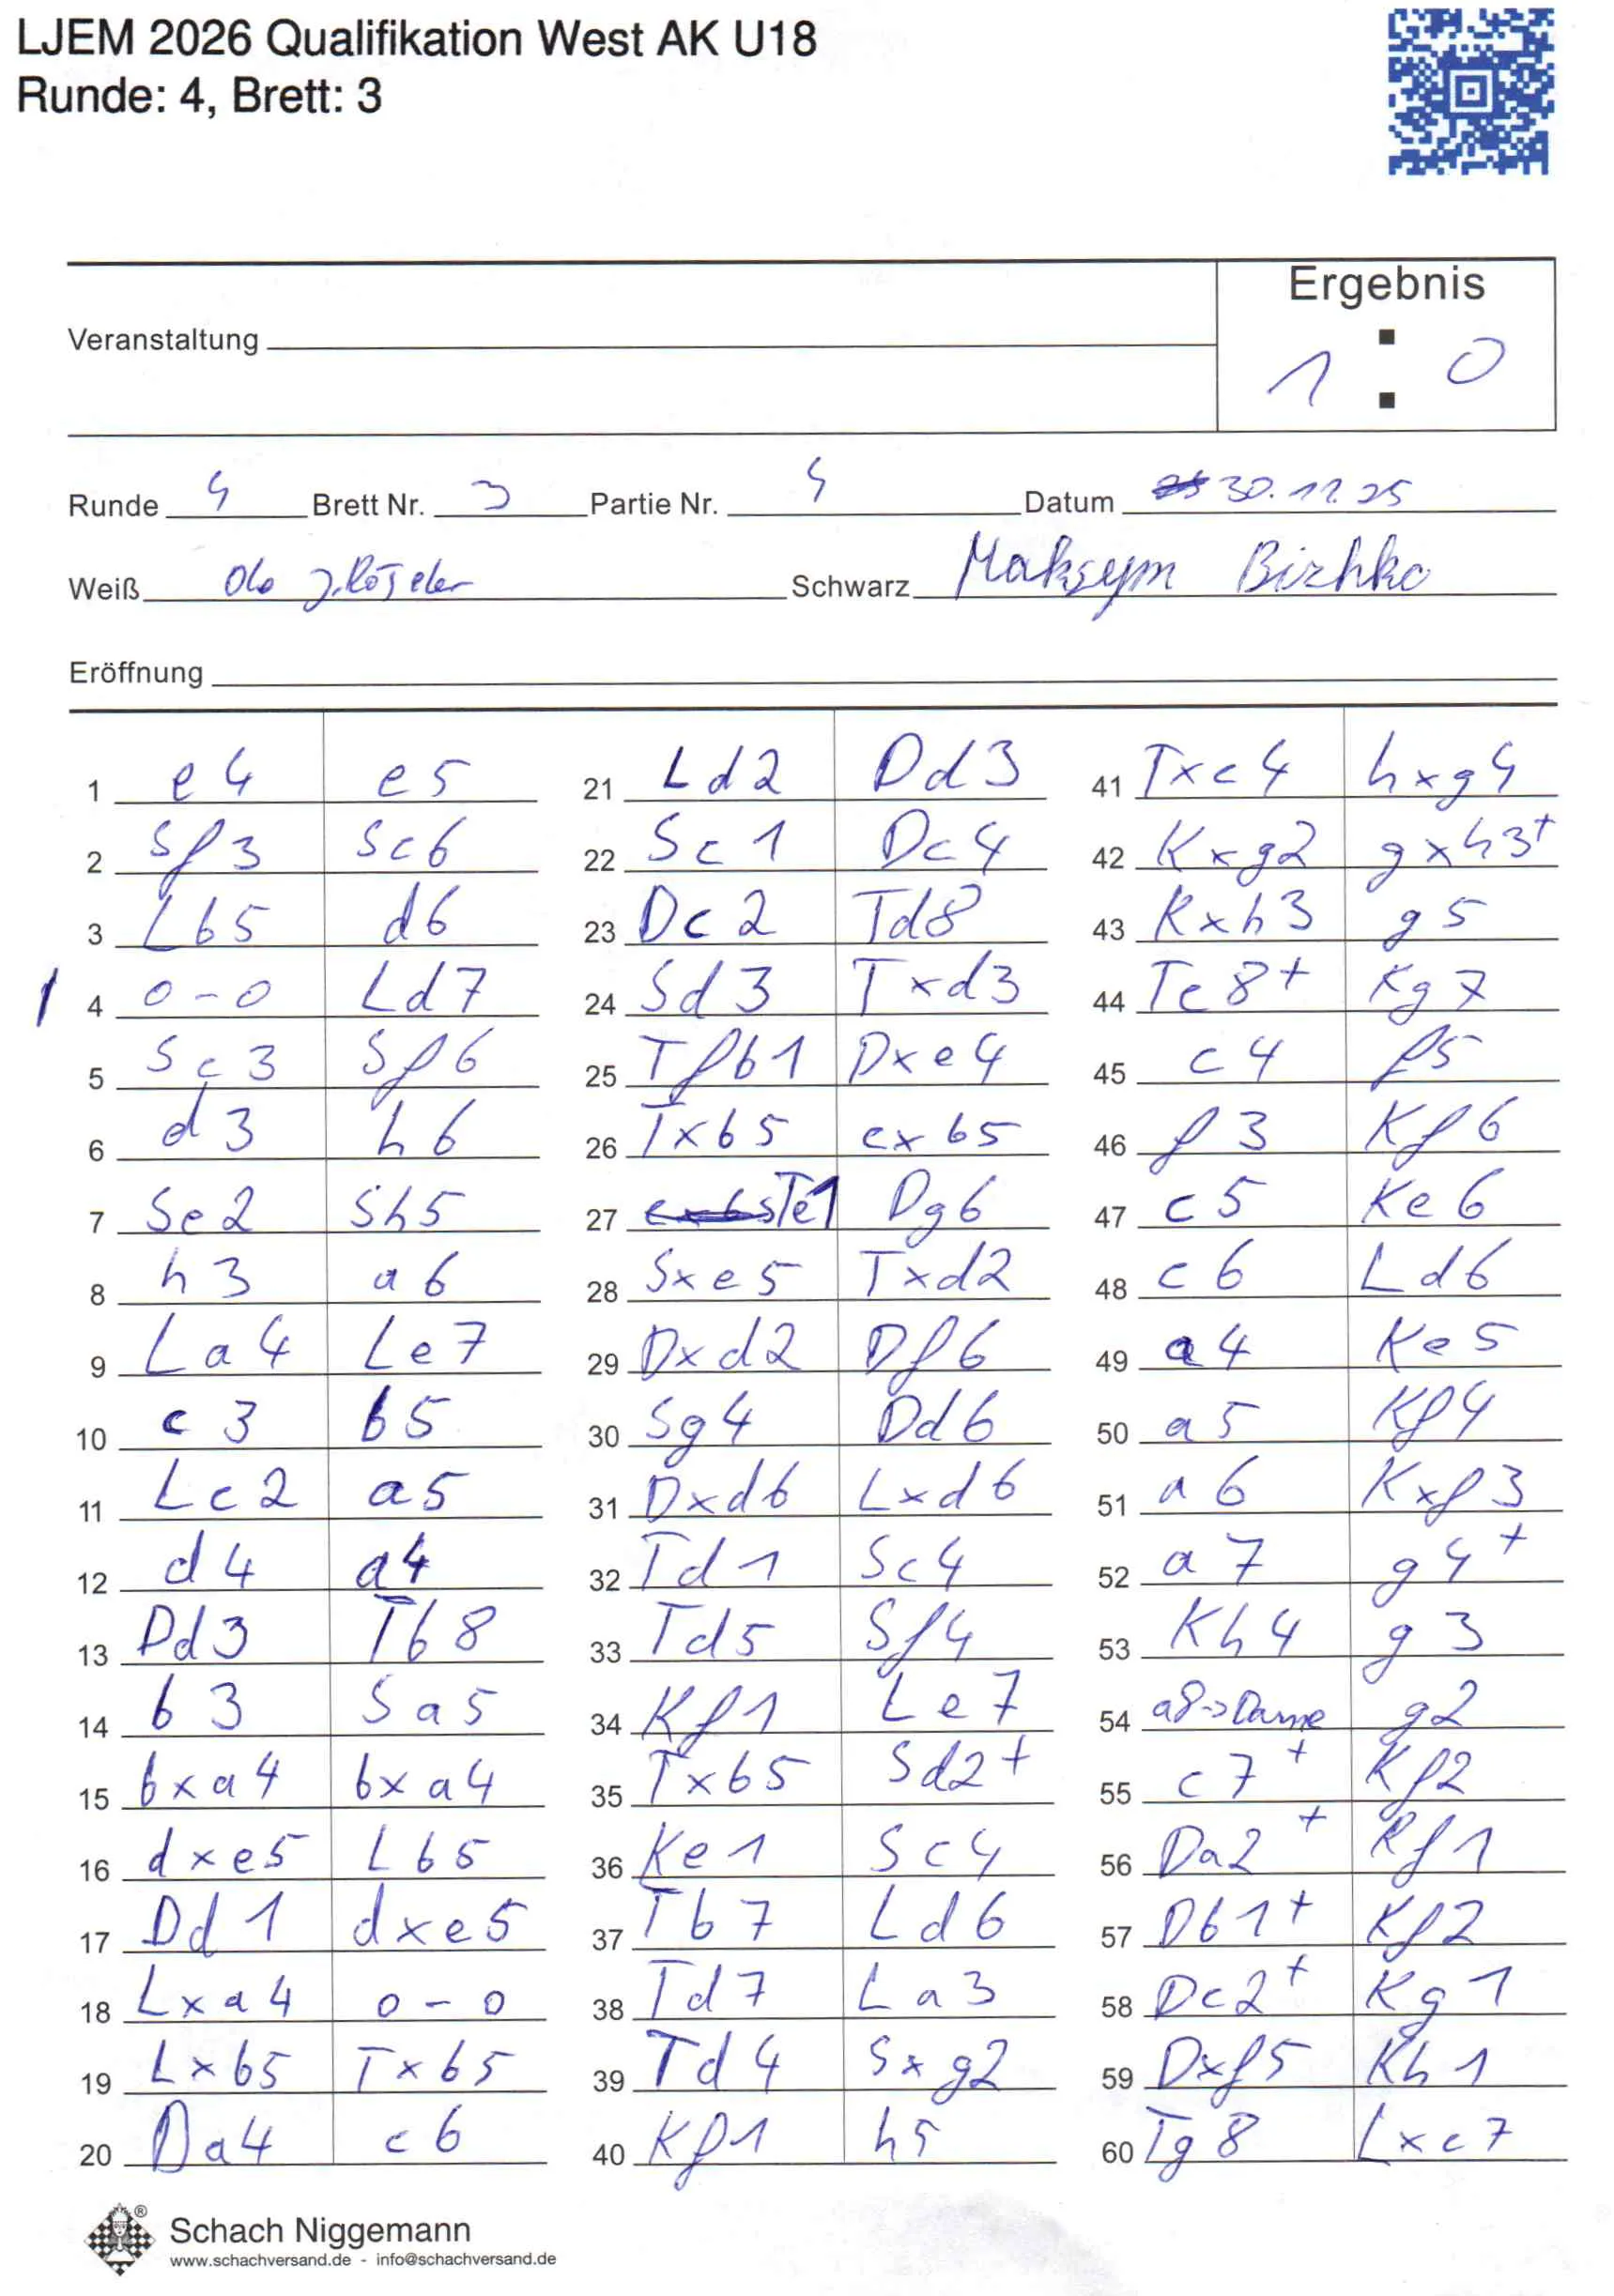 LJEM 2026 Qualifikation West AK U18
Runde: 4, Brett: 3
Ergebnis
Veranstaltung
1 : 0
Runde 4 Brett Nr. 3 Partie Nr. 4 Datum 30.12.25
Weiß Schwarz Maksym Bizhko
Eröffnung
1 e4 e5
2 Sf3 Sc6
3 Lb5 d6
4 0-0 Ld7
5 Sc3 Sf6
6 d3 h6
7 Se2 Sh5
8 h3 a6
9 La4 Le7
10 c3 b5
11 Lc2 a5
12 d4 a4
13 Dd3 Tb8
14 b3 Sa5
15 bxa4 bxa4
16 dxe5 Lb5
17 Dd1 dxe5
18 Lxa4 0-0
19 Lxb5 Txb5
20 Da4 c6
21 Ld2 Dd3
22 Sc1 Dc4
23 Dc2 Td8
24 Sd3 Txd3
25 Tfb1 Dxe4
26 Txb5 cxb5
27 Te1 Dg6
28 Sxe5 Txd2
29 Dxd2 Df6
30 Sg4 Dd6
31 Dxd6 Lxd6
32 Td1 Sc4
33 Td5 Sf4
34 Kf1 Le7
35 Txb5 Sd2+
36 Ke1 Sc4
37 Tb7 Ld6
38 Td7 La3
39 Td4 Sxg2
40 Kf1 h5
41 Txc4 hxg4
42 Kxg2 gxh3+
43 Kxh3 g5
44 Tc8+ Kg7
45 c4 f5
46 f3 Kf6
47 c5 Ke6
48 c6 Ld6
49 a4 Ke5
50 a5 Kf4
51 a6 Kxf3
52 a7 g4+
53 Kh4 g3
54 a8->Dame g2
55 c7+ Kf2
56 Da2+ Kf1
57 Db1+ Kf2
58 Dc2+ Kg1
59 Dxf5 Kh1
60 Tg8 Lxc7
Schach Niggemann
www.schachversand.de - info@schachversand.de